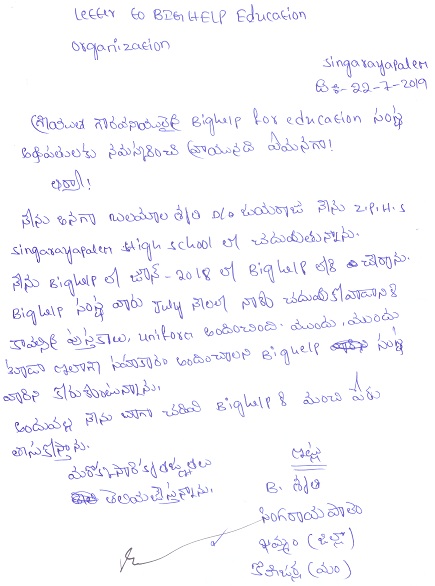 Letter to BIGHELP Education
Organization
Singarayapalem
తేది:-22-7-2019
శ్రీయుత గౌరవనీయులైన Bighelp for education సంస్థ
అధిపతులకు నమస్కరించి వ్రాయునది ఏమనగా!
ఆర్యా!
నేను అనగా బలుసుల శృతి D/o జయరాజు నేను Z.P.H.S
Singarayapalem High school లో చదువుతున్నాను.
నేను Bighelp లో జూన్-2018 లో Bighelp లోకి చేరాను.
Bighelp సంస్థ వారు July నెలలో నాకు చదువుకోవడానికి
కావలసిన పుస్తకాలు, uniform అందించింది. ముందు, ముందు
కూడా ఇలాగే సహకారం అందించాలని Bighelp సంస్థ
వారిని కోరుకుంటున్నాను.
అందువల్ల నేను బాగా చదివి Bighelp కి మంచి పేరు
తీసుకొస్తాను.
మరొక్కసారి కృతజ్ఞతలు
తెలియచేస్తున్నాను.
ఇట్లు
B. శృతి
సింగరాయపాలెం
ఖమ్మం (జిల్లా)
(మం)